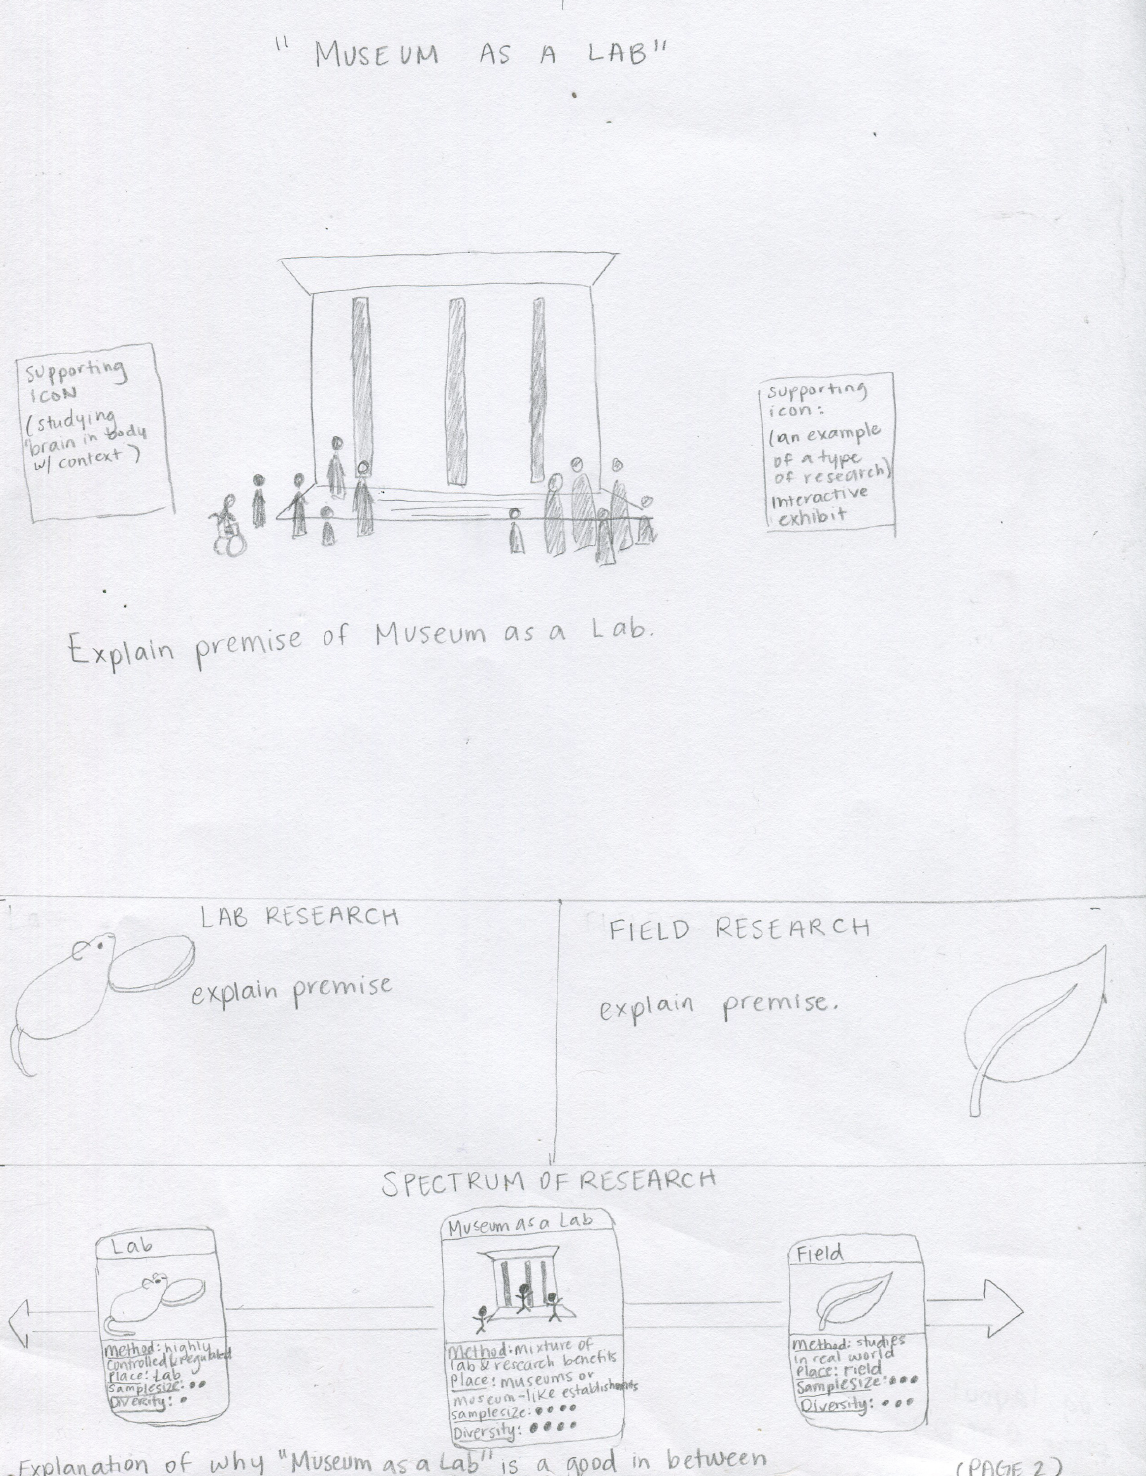 "MUSEUM AS A LAB"
Supporting
icon
(studying
brain in body
w/ context)
supporting
icon:
(an example
of a type
of research)
interactive
exhibit
Explain premise of Museum as a Lab.
LAB RESEARCH
explain premise
FIELD RESEARCH
explain premise.
SPECTRUM OF RESEARCH
Lab
Method: highly
controlled & regulated
Place: Lab
Samplesize: ••
Diversity: •
Museum as a Lab
Method: mixture of
lab & research benefits
Place: museums or
museum-like establishments
samplesize: ••••
Diversity: ••••
Field
Method: studies
in real world
Place: Field
Samplesize: •••
Diversity: •••
Explanation of why "Museum as a Lab" is a good in between
(PAGE 2)